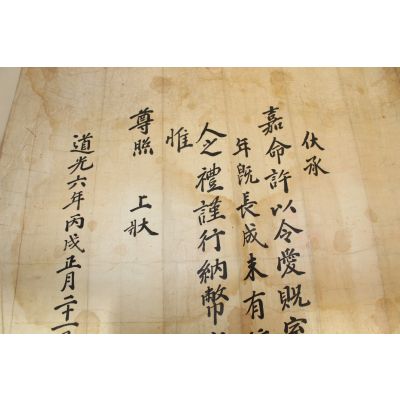 伏承
嘉命許以令愛貺室
年旣長成未有
人之禮謹行納幣
惟
尊照 上狀
道光六年丙戌正月二十一日